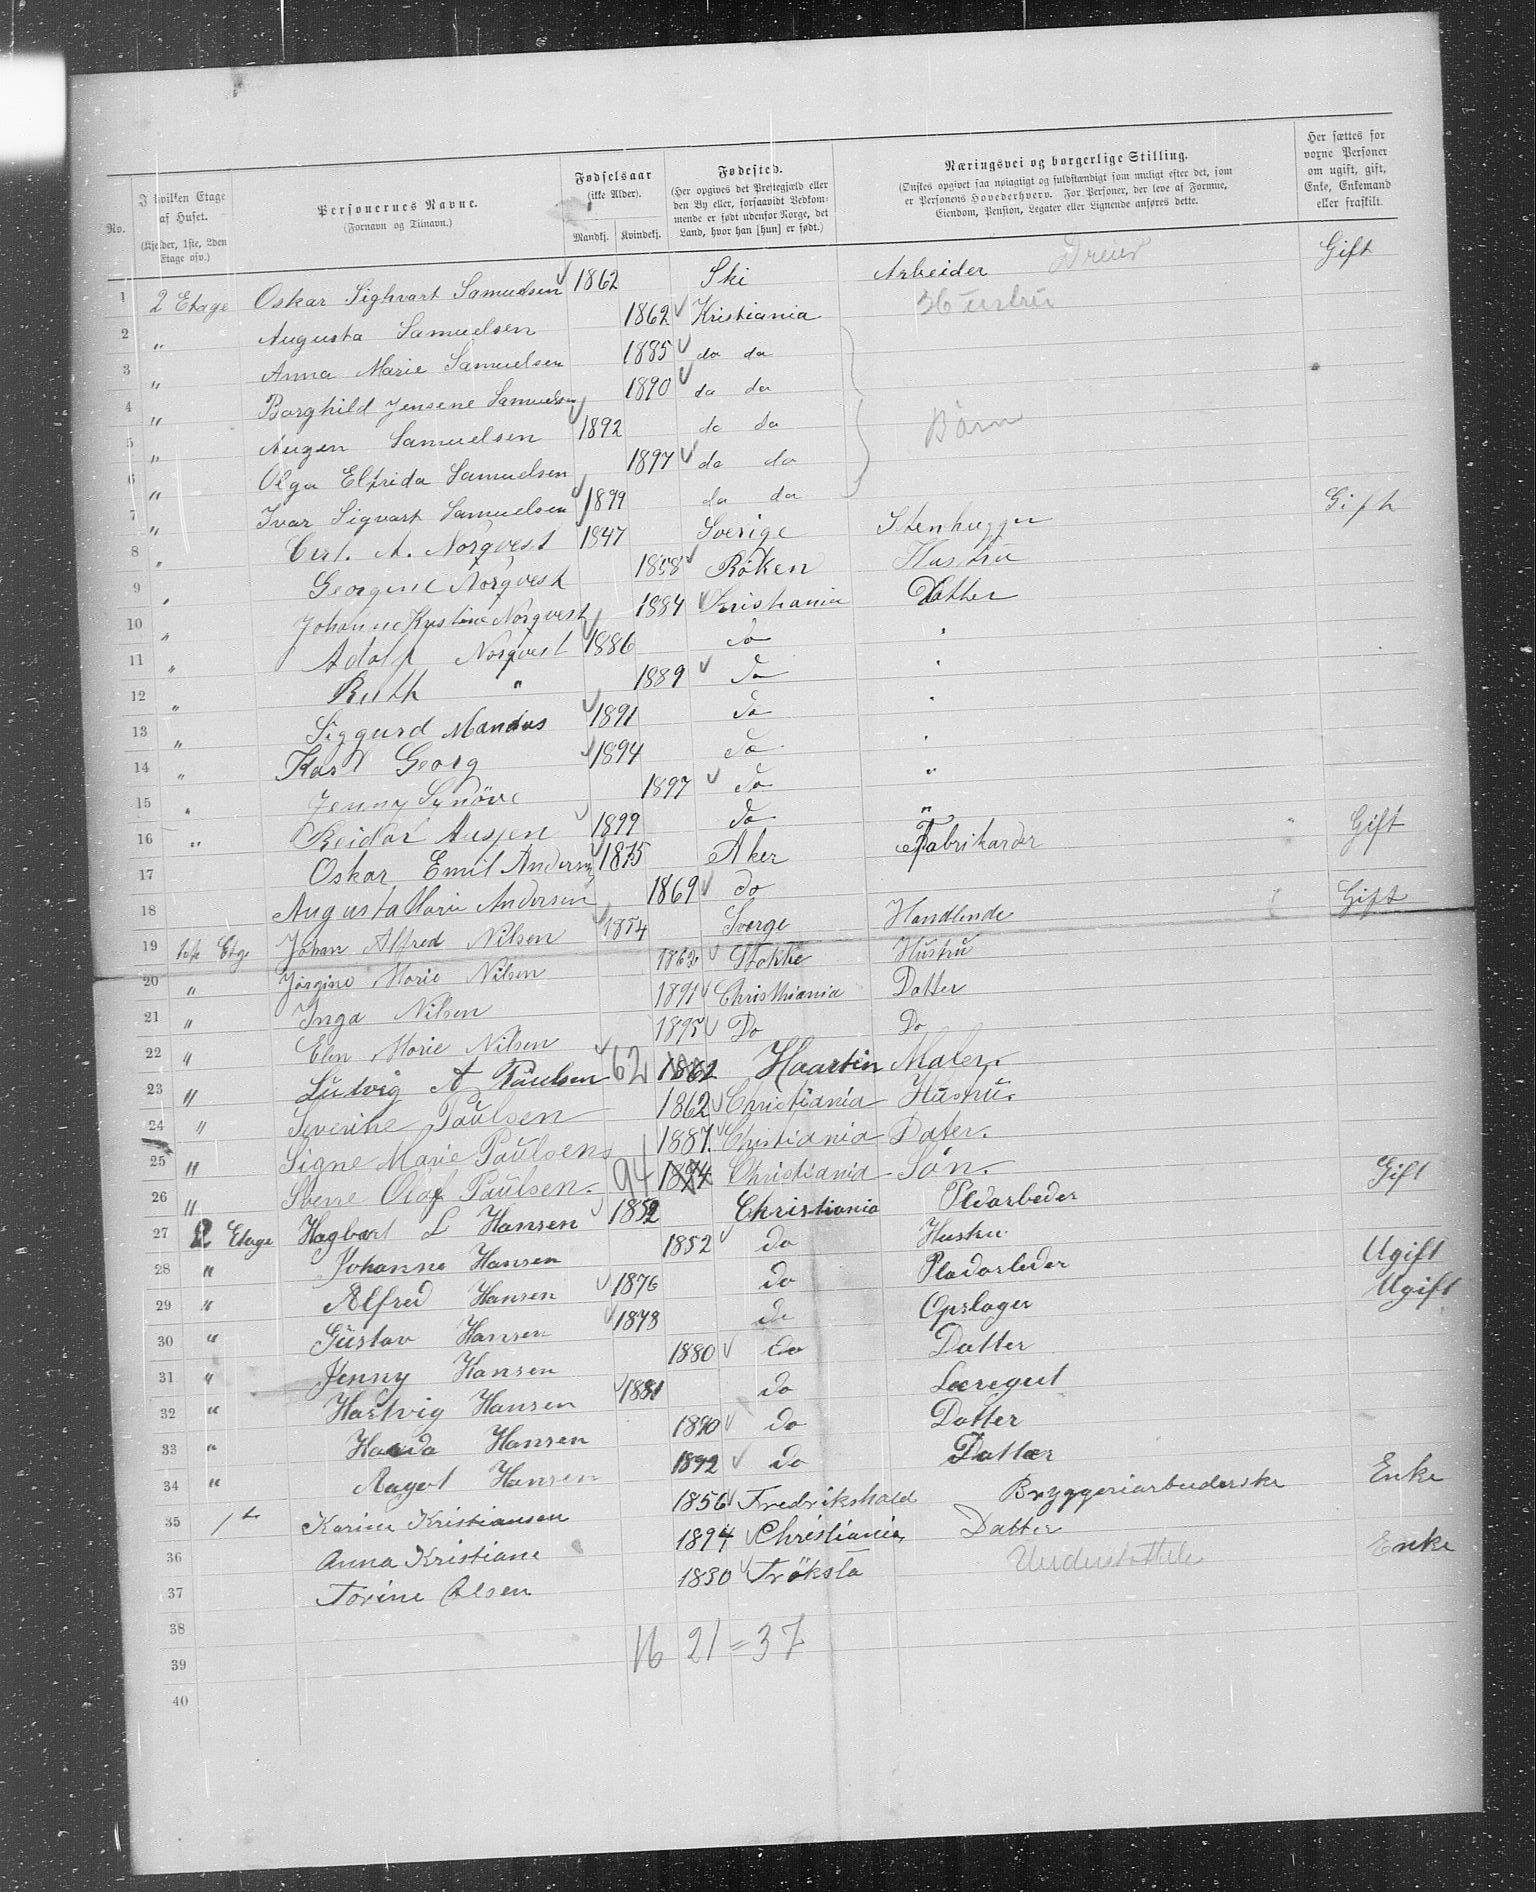 No. | I hvilken Etage af Huset. (Kjelder, 1ste, 2den Etage osv.) | Personernes Navne. (Fornavn og Tilnavn.) | Fødselsaar (ikke Alder). Mandkj. Kvindekj. | Fødested. (Her opgives det Prestegjæld eller den By eller, forsaavidt Vedkommende er født udenfor Norge, det Land, hvor han [hun] er født.) | Næringsvei og borgerlige Stilling. (Ønskes opgivet saa nøiagtigt og fuldstændigt som muligt efter det, som er Personens Hovederhverv. For Personer, der leve af Formue, Eiendom, Pension, Legater eller Lignende anføres dette. | Her sættes for vorne Personer om ugift, gift, Enke, Enkemand eller fraskilt.
1 2 Etage Oskar Sighvart Samuelsen 1862 Ski Arbeider Dreier Gift
2 " Augusta Samuelsen 1862 Kristiania Hustru
3 " Anna Marie Samuelsen 1885 do do
4 " Borghild Jensene Samuelsen 1890 do do
5 " Augen Samuelsen 1892 do do Børn
6 " Olga Elfrida Samuelsen 1897 do do
7 " Ivar Sigvart Samuelsen 1899 do do
8 " Carl. A. Norqvest 1847 Sverige Stenhugger Gift
9 " Georgine Norqvest 1858 Røken Hustru
10 " Johanne Kristine Norqvest 1884 Kristiania Datter
11 " Adolf Norqvest 1886 do "
12 " Ruth " 1889 do "
13 " Siggurd Mandus 1891 do "
14 " Karl Georg 1894 do "
15 " Jenny Synöve 1897 do "
16 " Reidar Ausjen 1899 do "
17 Oskar Emil Andersen 1875 Aker Fabrikarder Gift
18 Augusta Marie Andersen 1869 do
19 1ste Etge Johan Alfred Nilsen 1854 Sverge Handlende Gift
20 " Jørgine Marie Nilsen 1862 Stokke Hustru
21 " Inga Nilsen 1891 Christhiania Datter
22 " Elen Marie Nilsen 1895 Do Do
23 " Ludvig A Paulsen 62 1862 Haartin Maler.
24 " Severine Paulsen 1862 Christiania Hustru.
25 " Signe Marie Paulsen 1887. Christiania Dater.
26 " Sverre Olaf Paulsen. 94 1894 Christiania Sön.
27 2 Etage Hagbart L Hansen 1852 Christiania Pladarbeder Gift
28 " Johanne Hansen 1852 do Hustru
29 " Alfred Hansen 1876 do Pladarbeder Ugift
30 " Gustav Hansen 1878 do Opslager Ugift
31 " Jenny Hansen 1880 do Datter
32 " Hartvig Hansen 1881 do Læregut
33 " Hansen 1890 do Datter
34 " Aagot Hansen 1892 do Datter
35 1ste Karine Kristiansen 1856 Fredrikshald Bryggeriarbeiderske Enke
36 Anna Kristiane 1894 Christiania, Datter
37 Torine Olsen 1830 Trøksta Understøttelse Enke
38
39 16 21 = 37
40